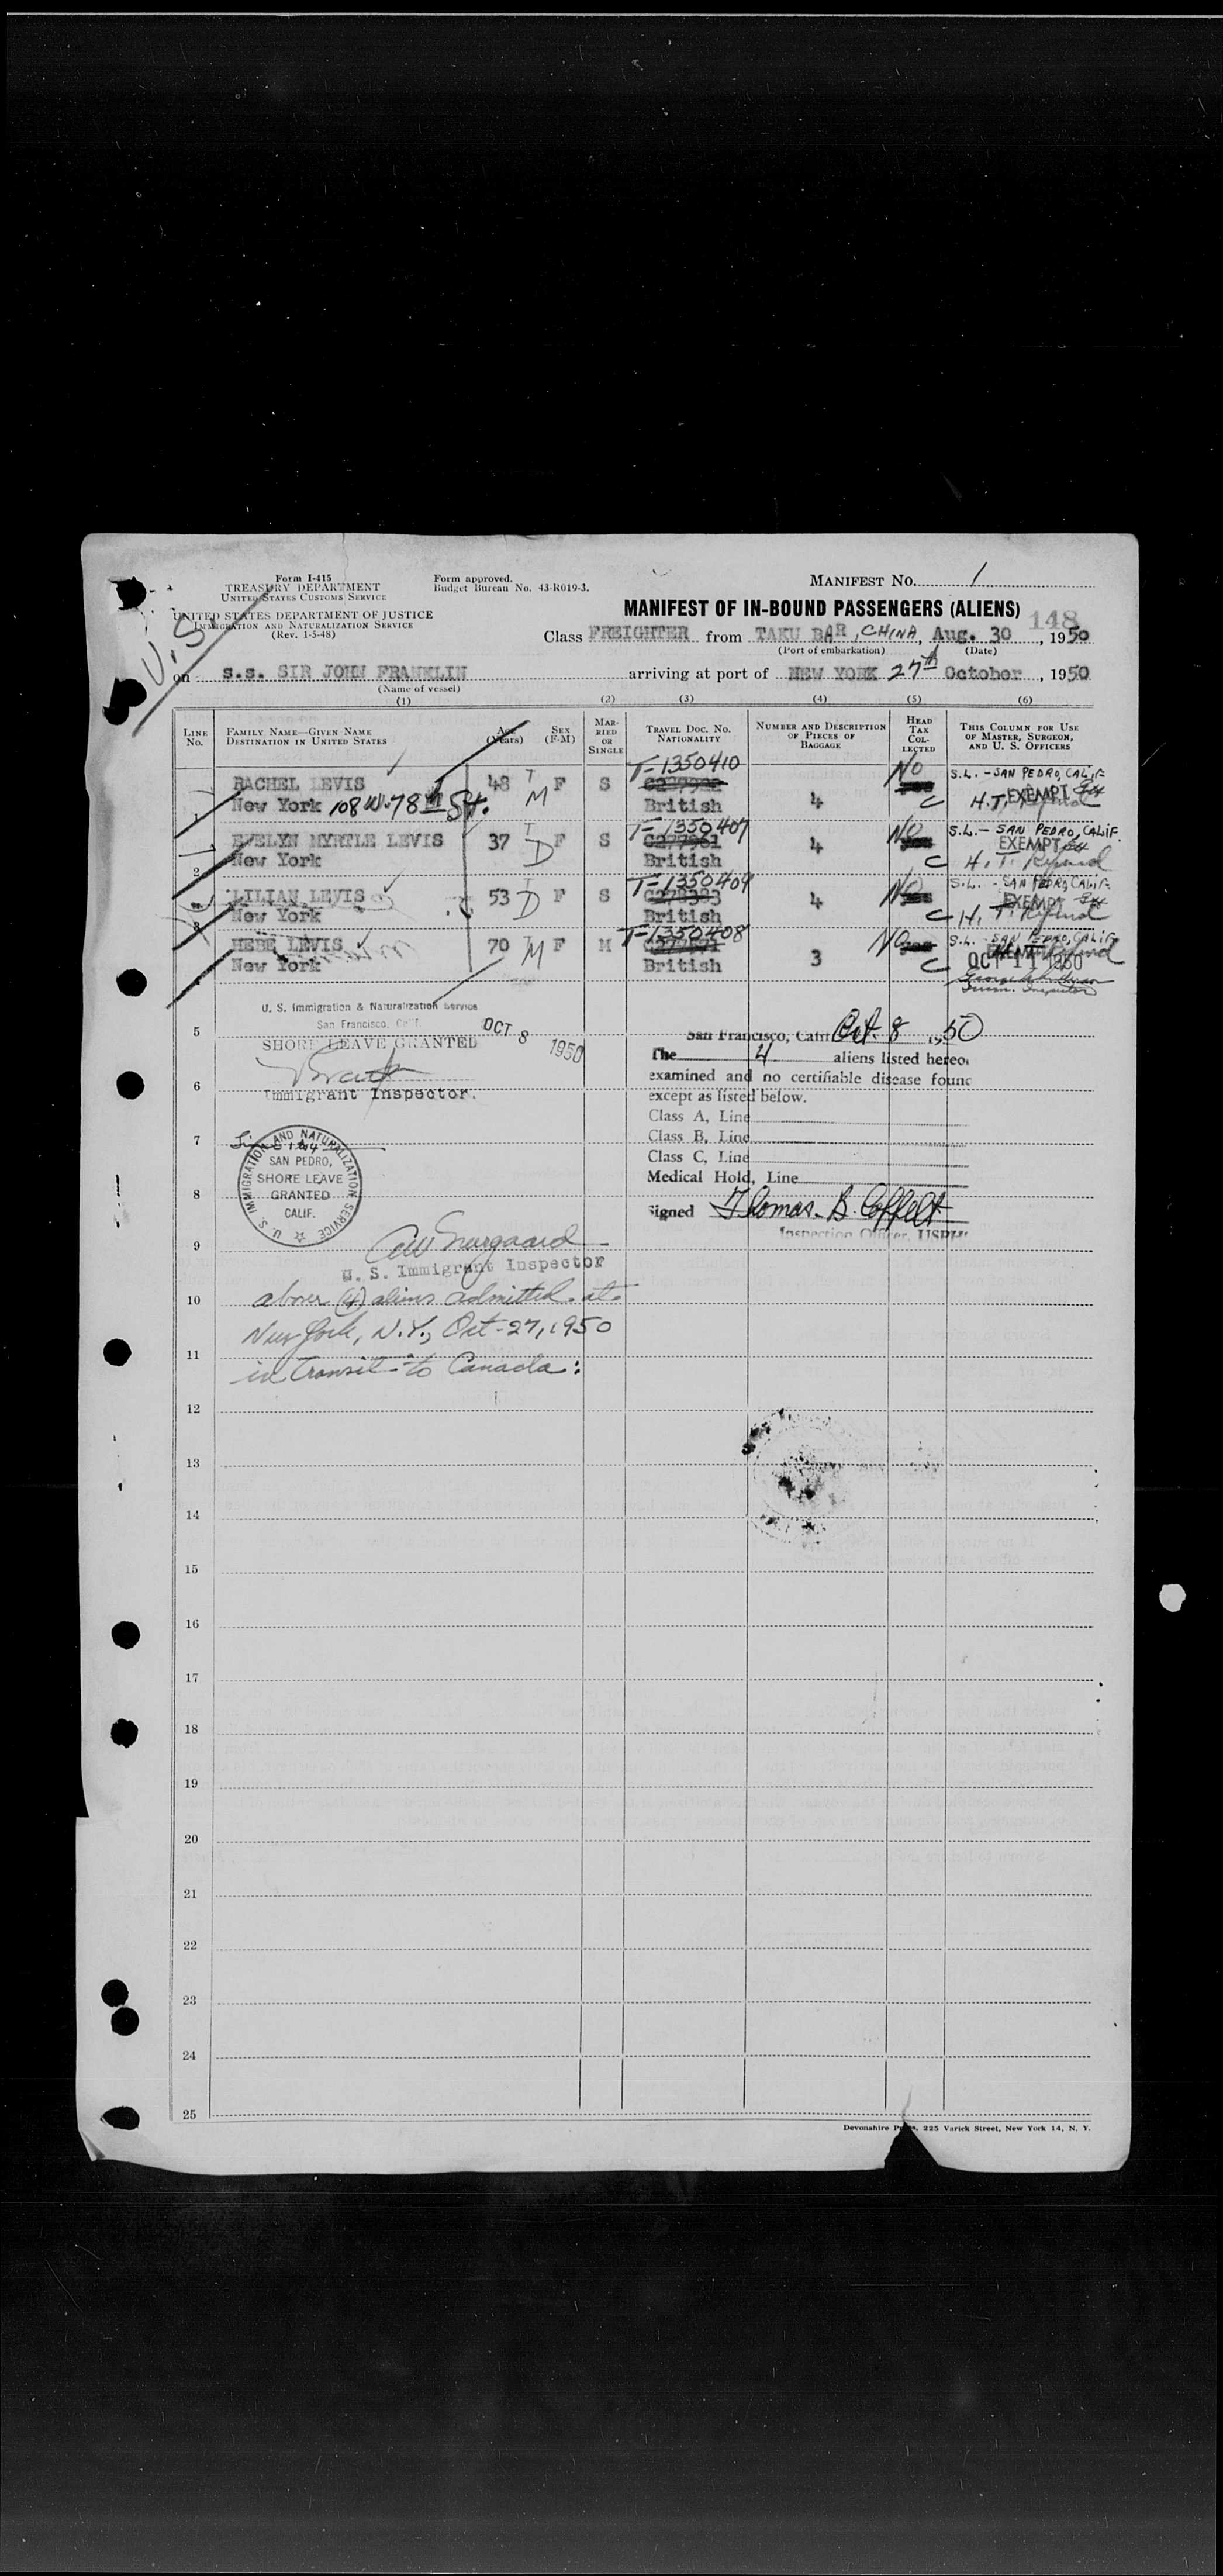 Form I-415
TREASURY DEPARTMENT
UNITED STATES CUSTOMS SERVICE
UNITED STATES DEPARTMENT OF JUSTICE
IMMIGRATION AND NATURALIZATION SERVICE
(Rev. 1-5-48)
Form approved.
Budget Bureau No. 43-R019-3.
MANIFEST NO. 1
MANIFEST OF IN-BOUND PASSENGERS (ALIENS)
148
U.S.
Class FREIGHTER from TAKU BAR, CHINA, Aug. 30, 1950
(Port of embarkation) (Date)
on S.S. SIR JOHN FRANKLIN arriving at port of NEW YORK 27th October, 1950
(Name of vessel)
(1) (2) (3) (4) (5) (6)
LINE No. FAMILY NAME—GIVEN NAME DESTINATION IN UNITED STATES Age (Years) SEX (F-M) MARRIED OR SINGLE TRAVEL DOC. NO. NATIONALITY NUMBER AND DESCRIPTION OF PIECES OF BAGGAGE HEAD TAX COLLECTED THIS COLUMN FOR USE OF MASTER, SURGEON, AND U. S. OFFICERS
T-1350410 No S.L. - SAN PEDRO, CALIF
RACHEL LEVIS 48 T F S
1 New York 108 W. 78th St. M British 4 C H.T. EXEMPT
T-1350407 No S.L. - SAN PEDRO, CALIF.
EVELYN MYRTLE LEVIS 37 T F S 4 EXEMPT
2 New York D British C H.T.
T-1350409 No S.L. - SAN PEDRO, CALIF.
LILIAN LEVIS 53 T F S 4 EXEMPT
3 New York D British C H.T.
T-1350408 No S.L. SAN PEDRO, CALIF
HEBE LEVIS 70 T F M
New York M British 3 C OCT 11 1950
U. S. Immigration & Naturalization Service
San Francisco, Calif.
SHORE LEAVE GRANTED OCT 8 1950
Immigrant Inspector.
San Francisco, Calif Oct. 8 1950
The 4 aliens listed hereon
examined and no certifiable disease found
except as listed below.
Class A, Line
Class B, Line
Class C, Line
Medical Hold, Line
Signed Thomas B. Coffelt
Inspection Officer, USPH
5
6
7
8
9
U. S. IMMIGRATION AND NATURALIZATION SERVICE
SAN PEDRO,
SHORE LEAVE
GRANTED
CALIF.
U. S. Immigrant Inspector
10 above (4) aliens admitted at
New York, N.Y., Oct-27, 1950
11 in transit to Canada:
12
13
14
15
16
17
18
19
20
21
22
23
24
25
Devonshire Press, 225 Varick Street, New York 14, N. Y.